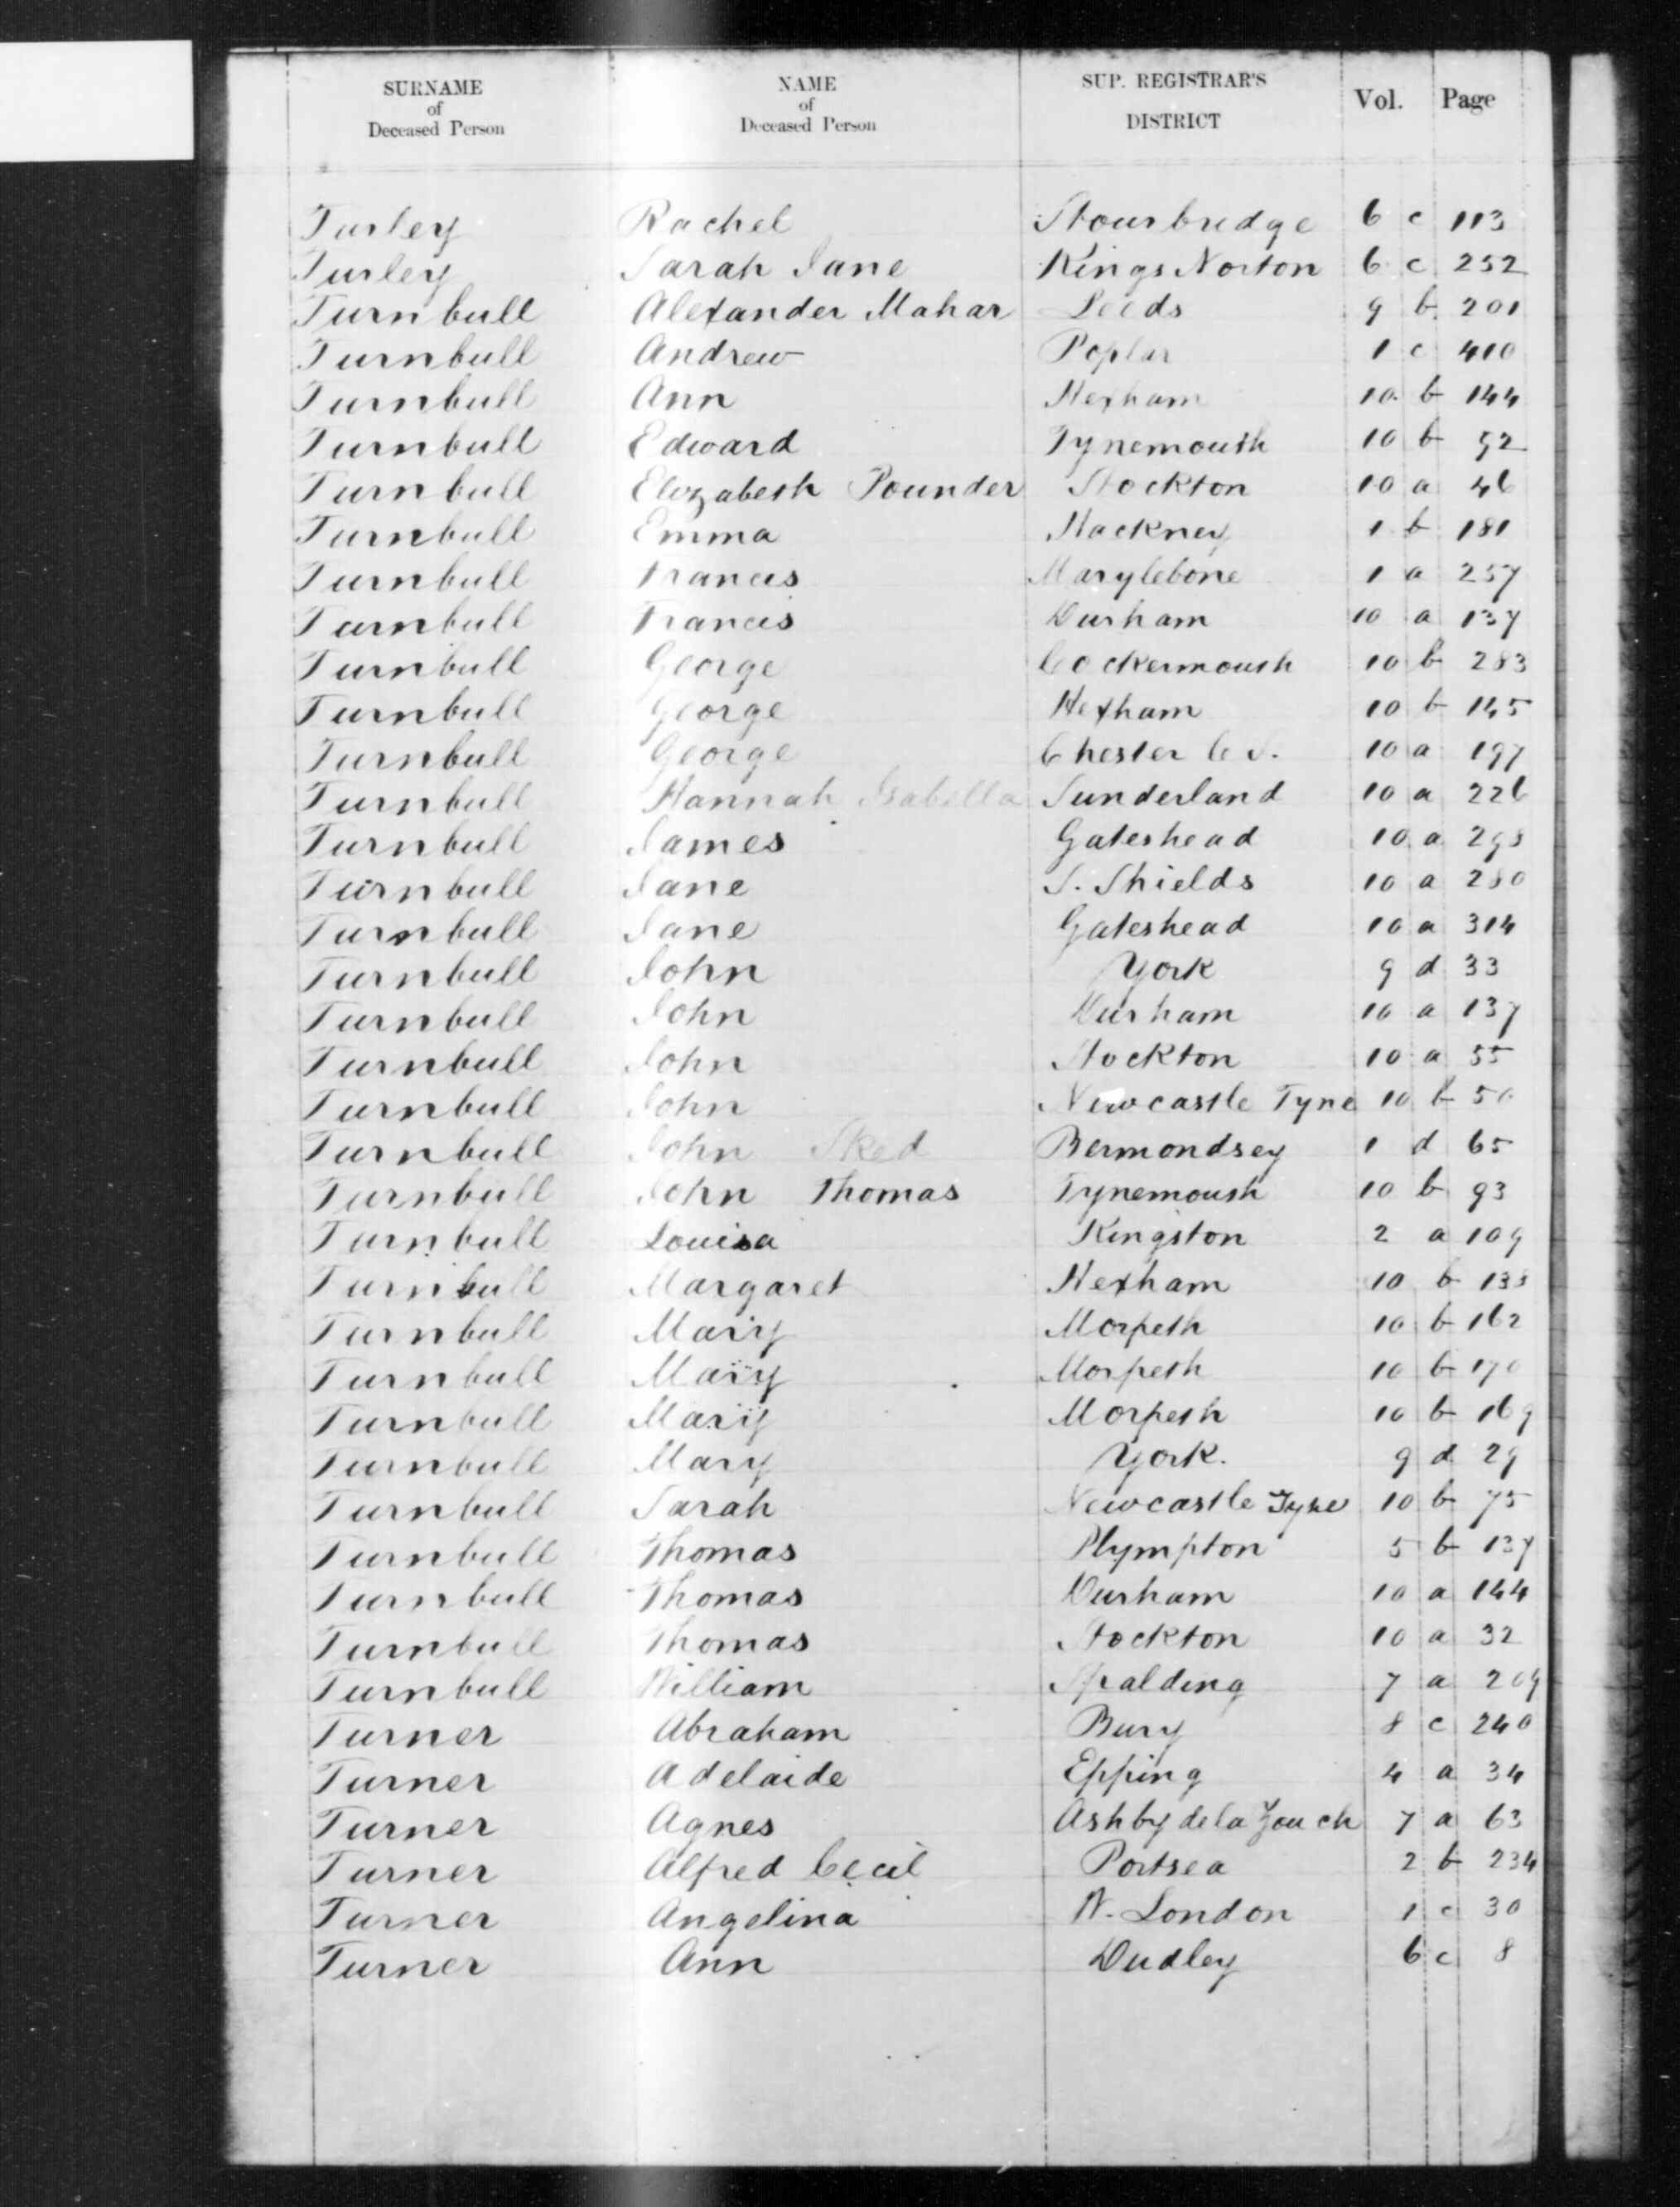 SURNAME of Deceased Person NAME of Deceased Person SUP. REGISTRAR'S DISTRICT Vol. Page
Turley Rachel Stourbridge 6 c 113
Turley Sarah Jane Kings Norton 6 c 252
Turnbull Alexander Mahar Leeds 9 b 201
Turnbull Andrew Poplar 1 c 410
Turnbull Ann Hexham 10 b 144
Turnbull Edward Tynemouth 10 b 92
Turnbull Elizabeth Pounder Stockton 10 a 46
Turnbull Emma Hackney 1 b 181
Turnbull Francis Marylebone 1 a 257
Turnbull Francis Durham 10 a 137
Turnbull George Cockermouth 10 b 283
Turnbull George Hexham 10 b 145
Turnbull George Chester le S. 10 a 197
Turnbull Hannah Isabella Sunderland 10 a 226
Turnbull James Gateshead 10 a
Turnbull Jane S. Shields 10 a 280
Turnbull Jane Gateshead 10 a 314
Turnbull John York 9 d 33
Turnbull John Durham 10 a 137
Turnbull John Stockton 10 a 55
Turnbull John Newcastle Tyne 10 b 50
Turnbull John Sked Bermondsey 1 d 65
Turnbull John Thomas Tynemouth 10 b 93
Turnbull Louisa Kingston 2 a 109
Turnbull Margaret Hexham 10 b
Turnbull Mary Morpeth 10 b 162
Turnbull Mary Morpeth 10 b 170
Turnbull Mary Morpeth 10 b 169
Turnbull Mary York. 9 d 29
Turnbull Sarah Newcastle Tyne 10 b 75
Turnbull Thomas Plympton 5 b 137
Turnbull Thomas Durham 10 a 144
Turnbull Thomas Stockton 10 a 32
Turnbull William Spalding 7 a 209
Turner Abraham Bury 8 c 240
Turner Adelaide Epping 4 a 34
Turner Agnes Ashby de la Zouch 7 a 63
Turner Alfred Cecil Portsea 2 b 234
Turner Angelina W. London 1 c 30
Turner Ann Dudley 6 c 8